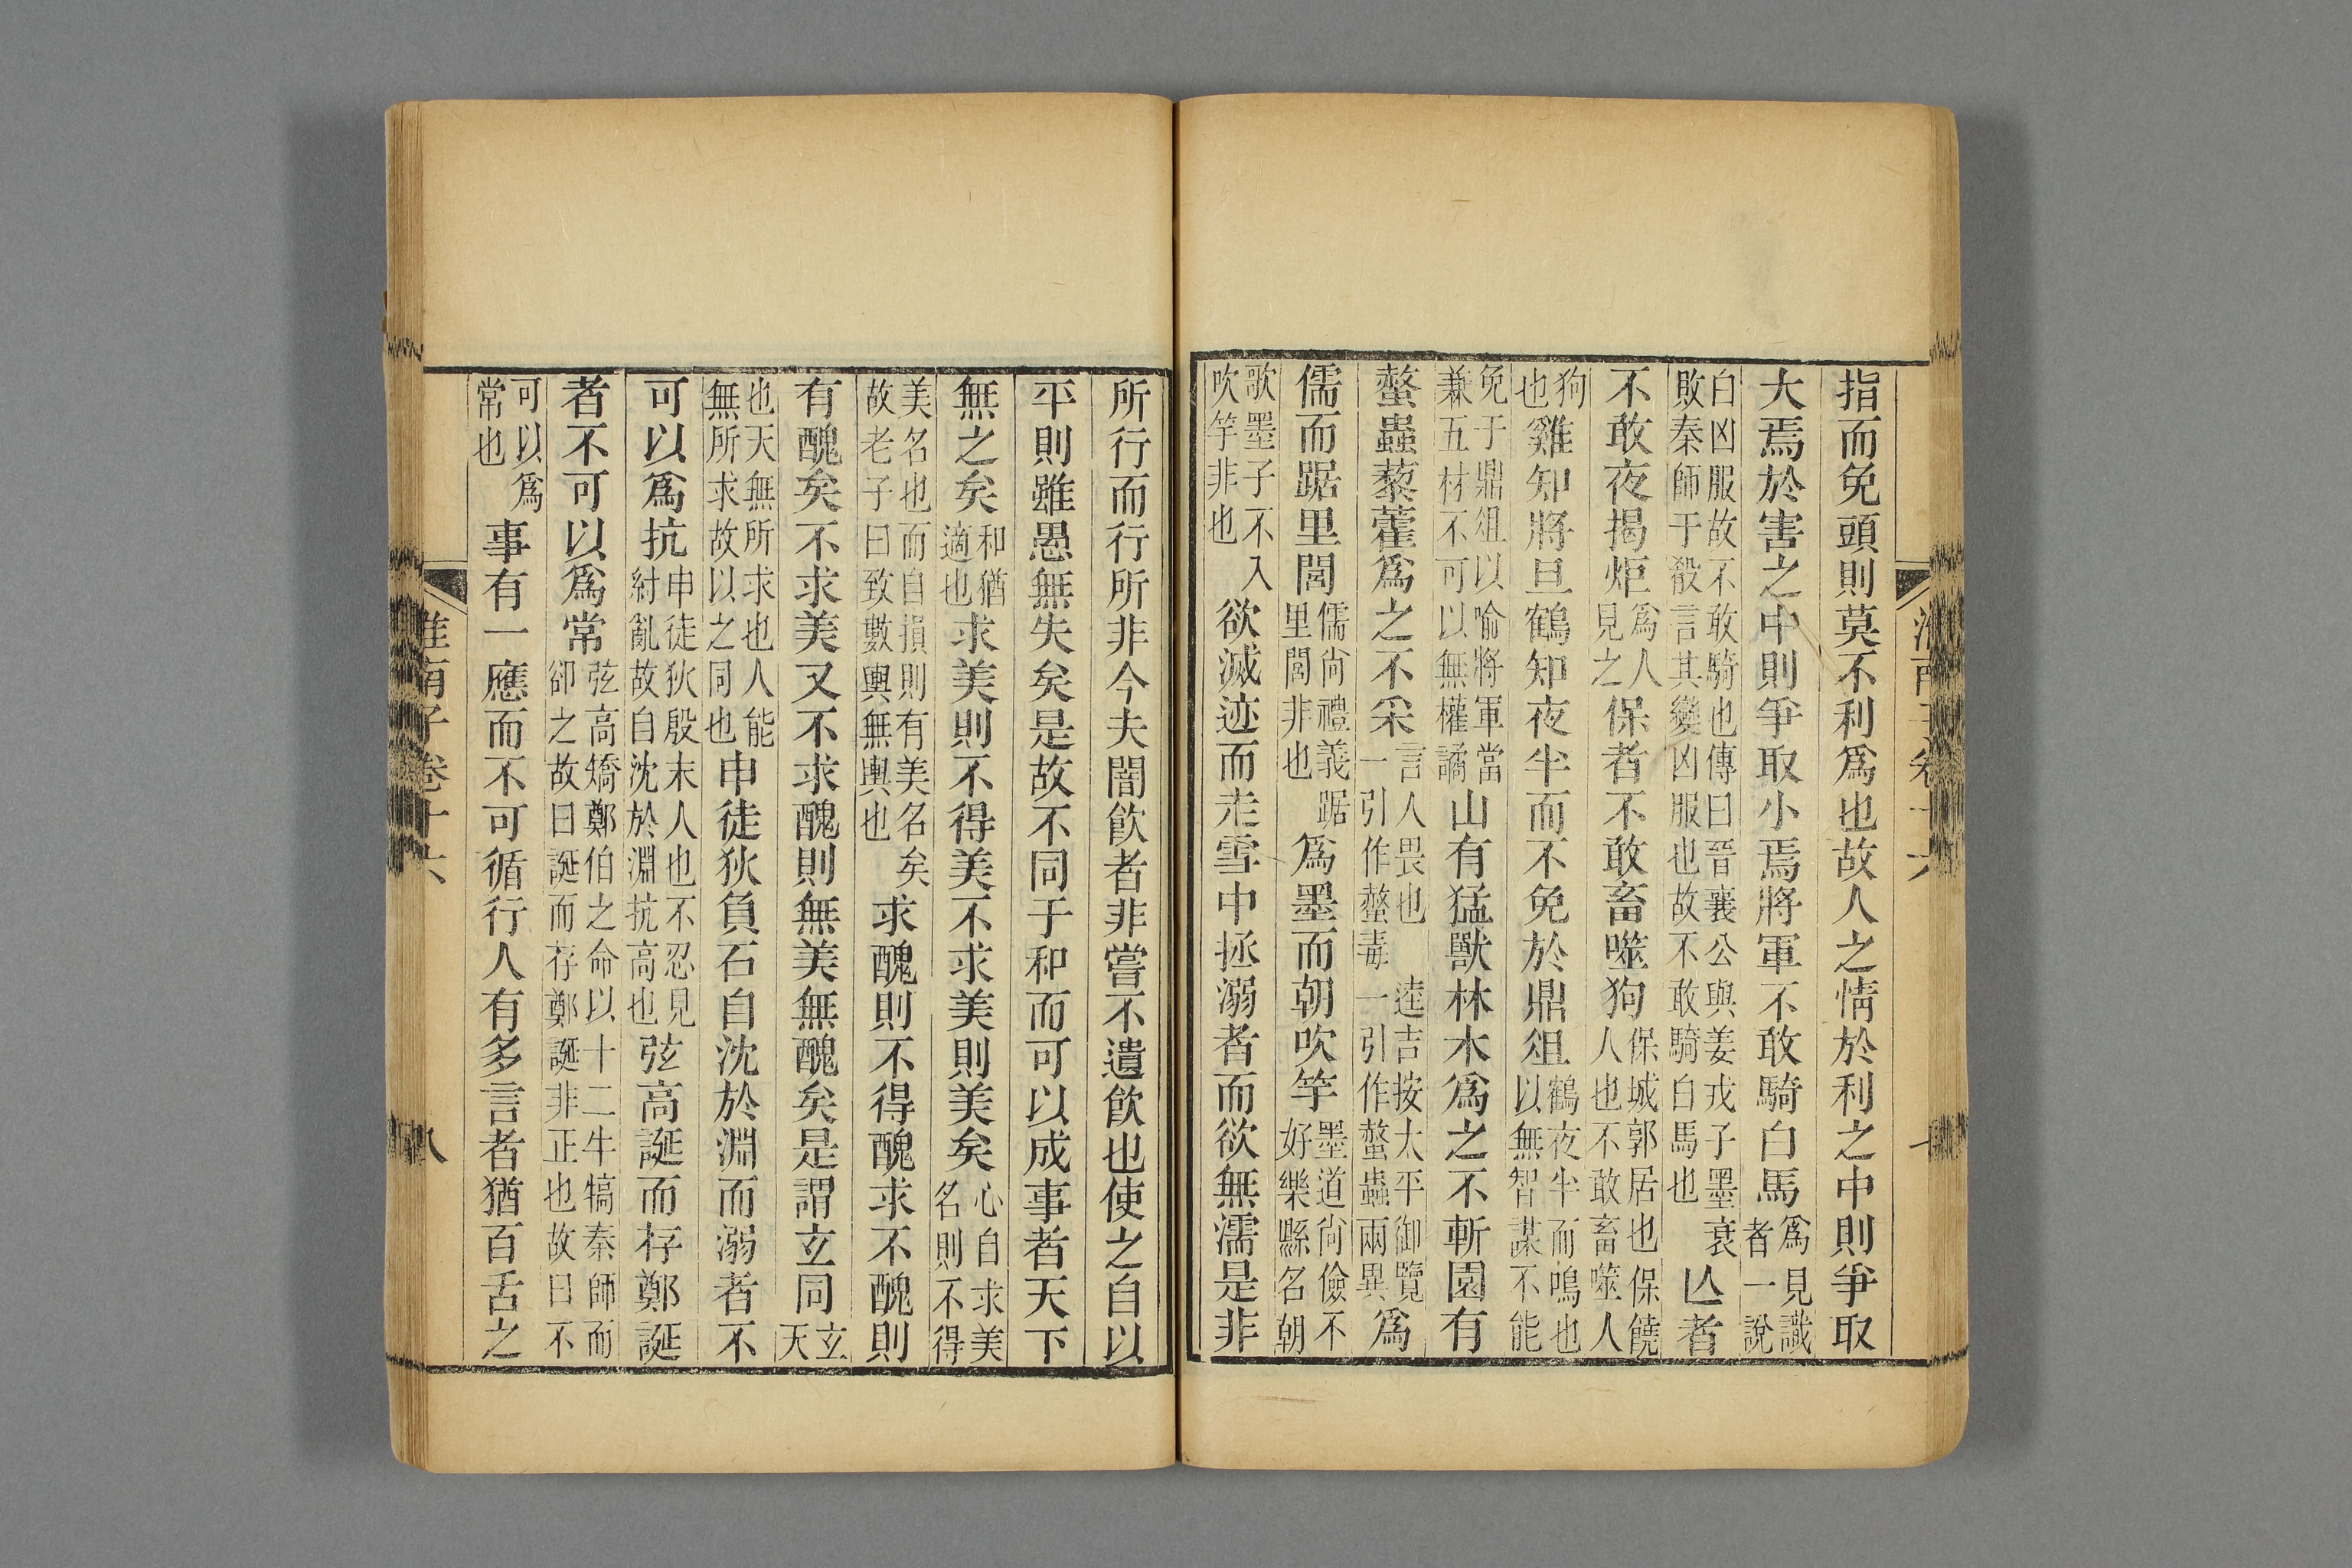 指而免頭則莫不利爲也故人之情於利之中則爭取
大焉於害之中則爭取小焉將軍不敢騎白馬爲見識者一說
白凶服故不敢騎也傳曰晉襄公與姜戎子墨衰敗秦師于殽言其變凶服也故不敢騎白馬也亾者
不敢夜揭炬爲人見之保者不敢畜噬狗保城郭居也保饒人也不敢畜噬人
狗也雞知將旦鶴知夜半而不免於鼎俎鶴夜半而鳴也以無智謀不能
免于鼎俎以喻將軍當兼五材不可以無權譎山有猛獸林木爲之不斬園有
螫蟲藜藿爲之不采言人畏也一引作螫毒逵吉按太平御覽一引作螫蟲兩異爲
儒而踞里閭儒尙禮義踞里閭非也爲墨而朝吹竽墨道尙儉不好樂縣名朝
歌墨子不入吹竽非也欲滅迹而走雪中拯溺者而欲無濡是非
淮南子卷十六
所行而行所非今夫闇飮者非嘗不遺飮也使之自以
平則雖愚無失矣是故不同于和而可以成事者天下
無之矣和猶適也求美則不得美不求美則美矣心自求美名則不得
美名也而自損則有美名矣故老子曰致數輿無輿也求醜則不得醜求不醜則
有醜矣不求美又不求醜則無美無醜矣是謂玄同玄天
也天無所求也人能無所求故以之同也申徒狄負石自沈於淵而溺者不
可以爲抗申徒狄殷末人也不忍見紂亂故自沈於淵抗高也弦高誕而存鄭誕
者不可以爲常弦高矯鄭伯之命以十二牛犒秦師而卻之故曰誕而存鄭誕非正也故曰不
可以爲常也事有一應而不可循行人有多言者猶百舌之
淮南子卷十六
八